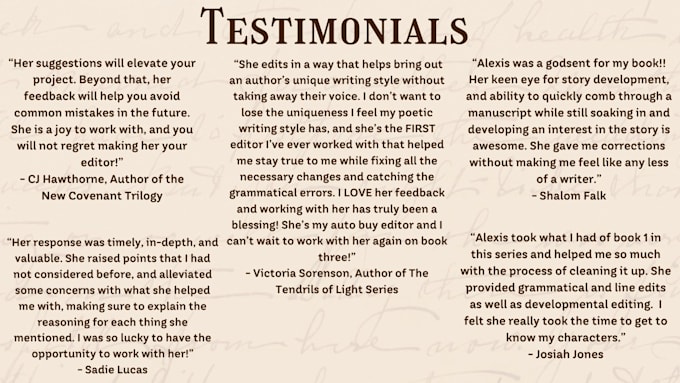 TESTIMONIALS
“Her suggestions will elevate your
project. Beyond that, her
feedback will help you avoid
common mistakes in the future.
She is a joy to work with, and you
will not regret making her your
editor!”
– CJ Hawthorne, Author of the
New Covenant Trilogy
“Her response was timely, in-depth, and
valuable. She raised points that I had
not considered before, and alleviated
some concerns with what she helped
me with, making sure to explain the
reasoning for each thing she
mentioned. I was so lucky to have the
opportunity to work with her!”
– Sadie Lucas
“She edits in a way that helps bring out
an author’s unique writing style without
taking away their voice. I don’t want to
lose the uniqueness I feel my poetic
writing style has, and she’s the FIRST
editor I’ve ever worked with that helped
me stay true to me while fixing all the
necessary changes and catching the
grammatical errors. I LOVE her feedback
and working with her has truly been a
blessing! She’s my auto buy editor and I
can’t wait to work with her again on book
three!”
– Victoria Sorenson, Author of The
Tendrils of Light Series
“Alexis was a godsent for my book!!
Her keen eye for story development,
and ability to quickly comb through a
manuscript while still soaking in and
developing an interest in the story is
awesome. She gave me corrections
without making me feel like any less
of a writer.”
– Shalom Falk
“Alexis took what I had of book 1 in
this series and helped me so much
with the process of cleaning it up. She
provided grammatical and line edits
as well as developmental editing. I
felt she really took the time to get to
know my characters.”
– Josiah Jones